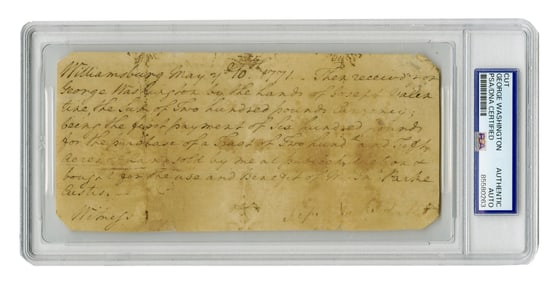 Williamsburg May ye 10th 1771. Then received
George Washington by the hands of Joseph Valen
tine, the sum of Two hundred pounds Currency;
being the first payment of Six hundred pounds
for the purchase of a Tract of Two hund and fifty
Acres sold by me at publick
bought for the use and benefit of Parke
Custis.
Witness
CUT
GEORGE WASHINGTON
PSA/DNA CERTIFIED
AUTHENTIC
AUTO
85580263
PSA